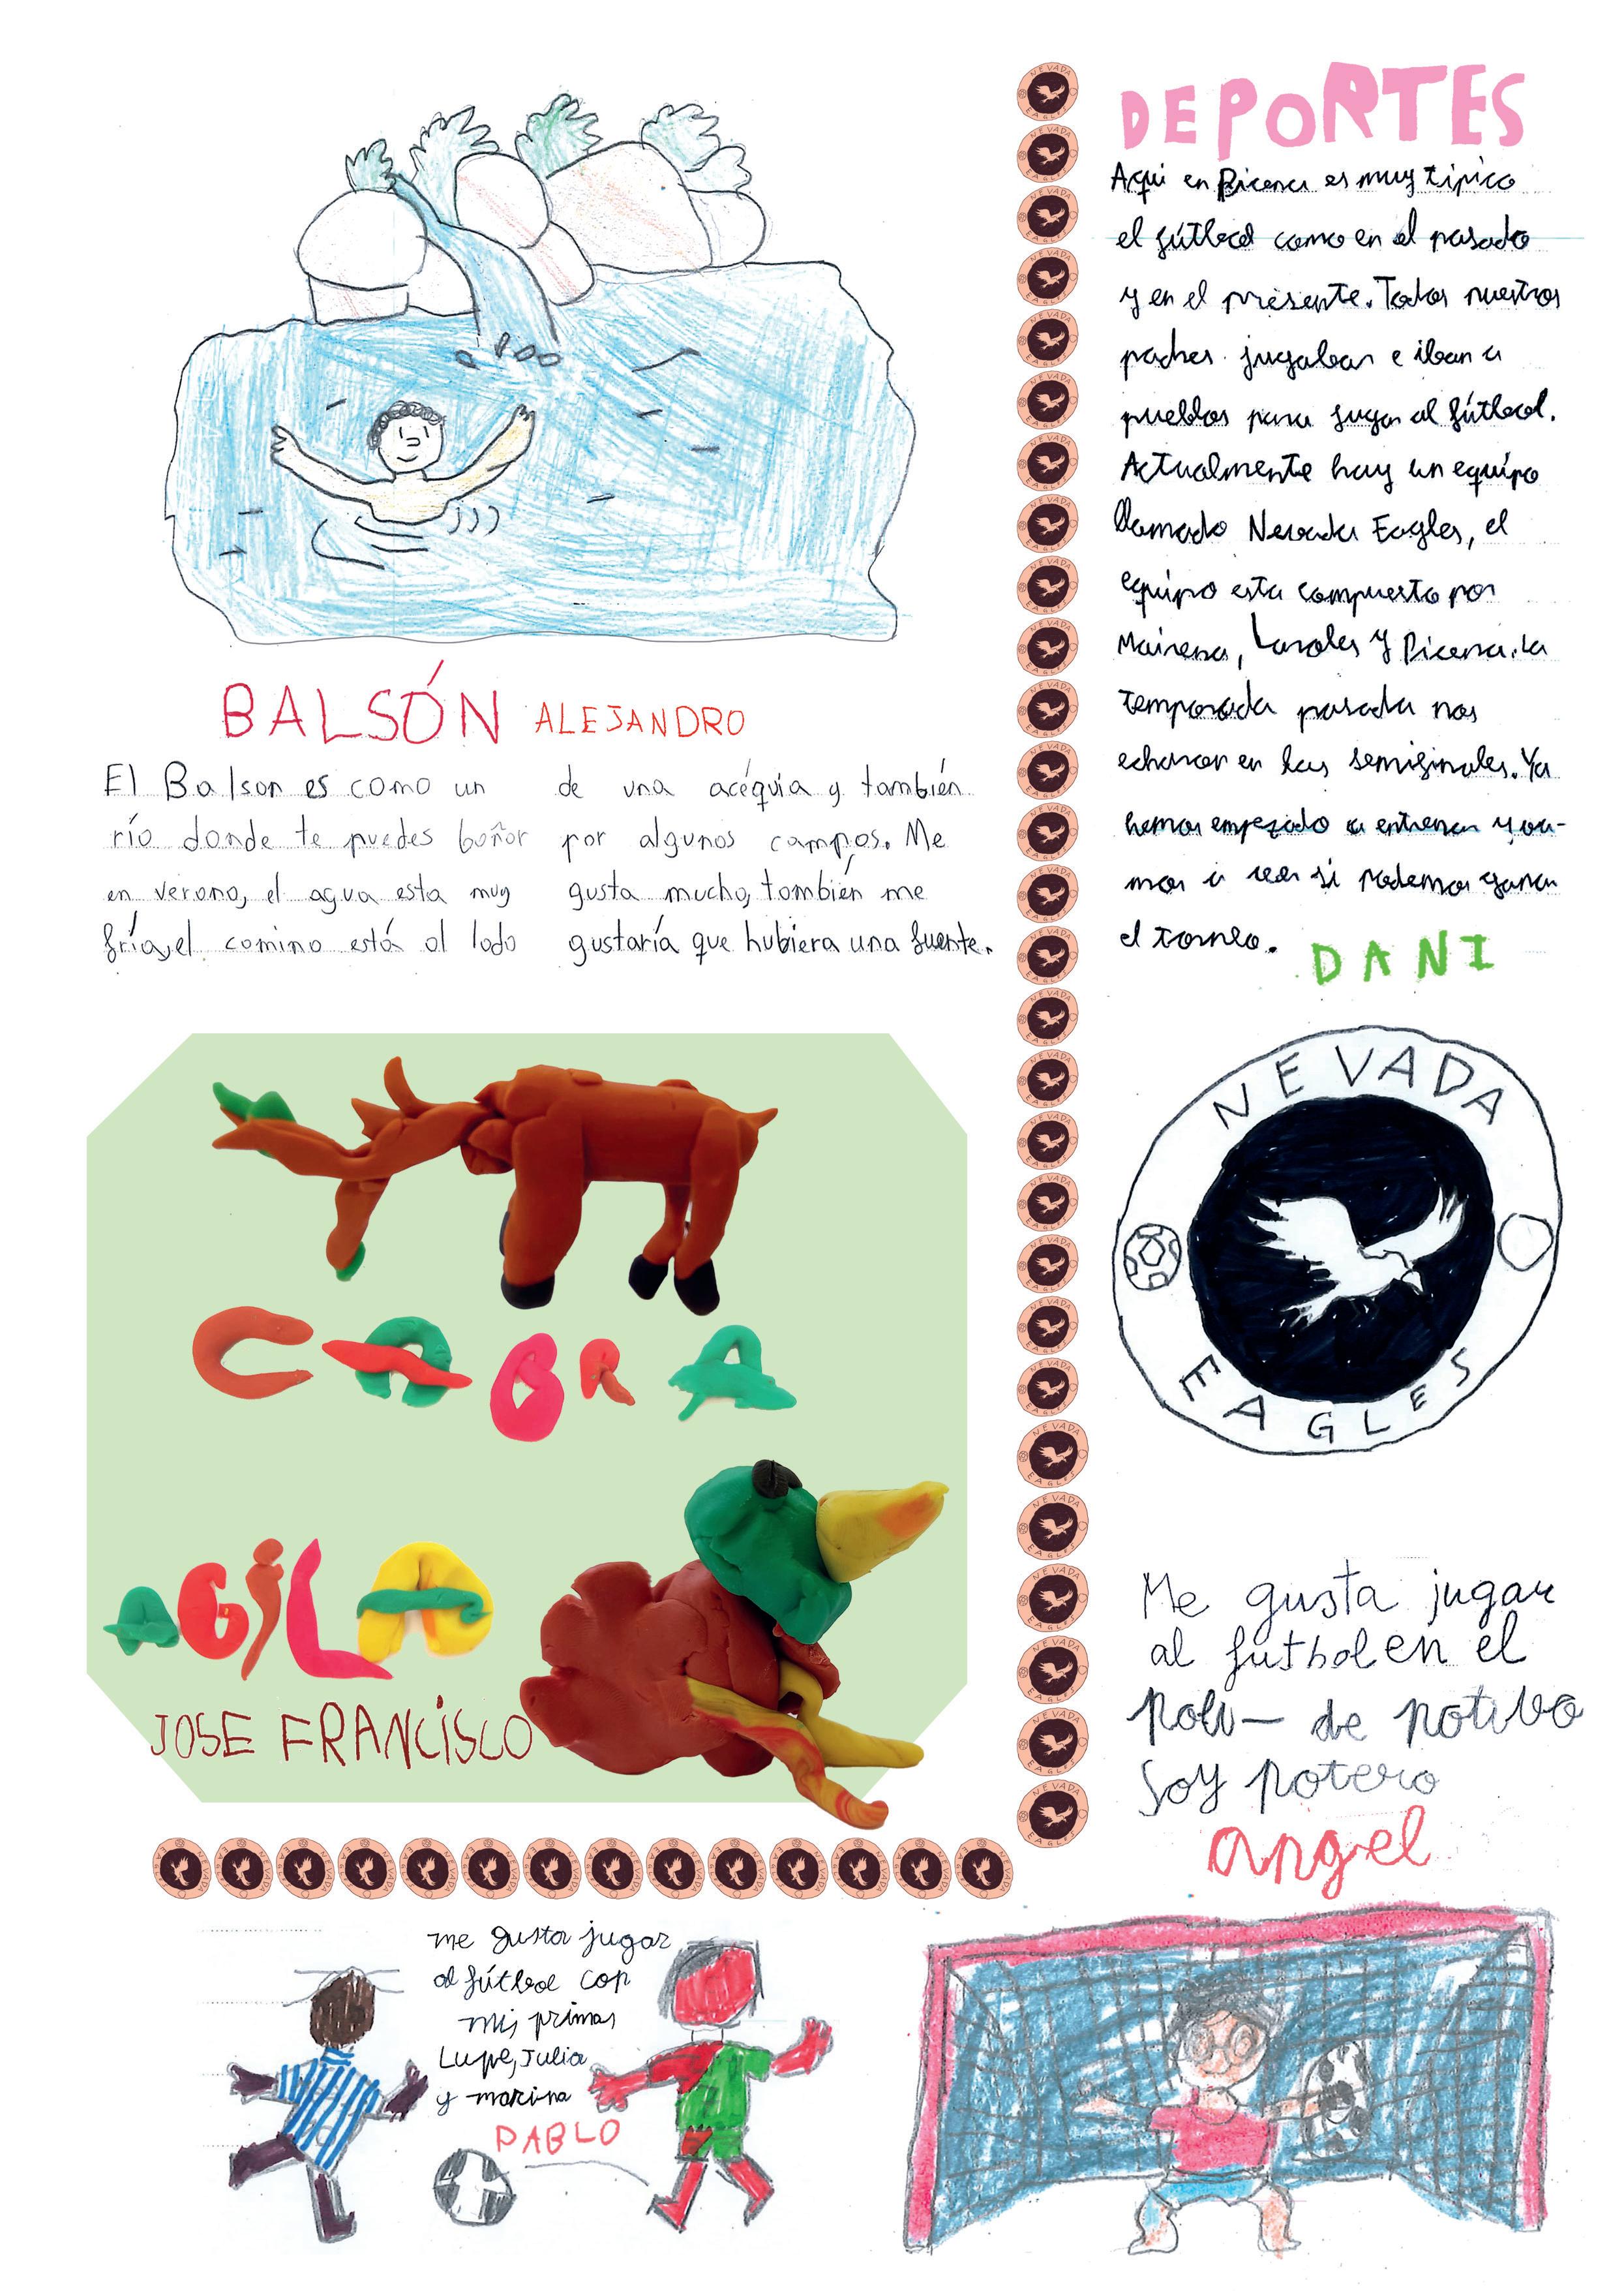 BALSÓN ALEJANDRO
El Balson es como un
río donde te puedes bañar
en verano, el agua esta muy
fría, el camino está al lado
de una acéquia y también
por algunos campos. Me
gusta mucho, también me
gustaría que hubiera una fuente.
CABRA
AGILA
JOSE FRANCISCO
DEPORTES
Aquí en Picena es muy típico
el fútbol como en el pasado
y en el présente. Todos nuestros
padres jugaban e iban a
pueblos para jugar al fútbol.
Actualmente hay un equipo
llamado Nevada Eagles, el
equipo esta compuesto por
Mairena, Laroles y Picena. La
temporada pasada nos
echaron en las semifinales. Ya
hemos empezado a entrenar y va-
mos a ver si podemos ganar
el torneo. DANI
NEVADA
EAGLES
Me gusta jugar
al futbol en el
poli- de
soy potero
angel
me gusta jugar
al fútbol con
mis primas
Lupe, Julia
y marina
PABLO